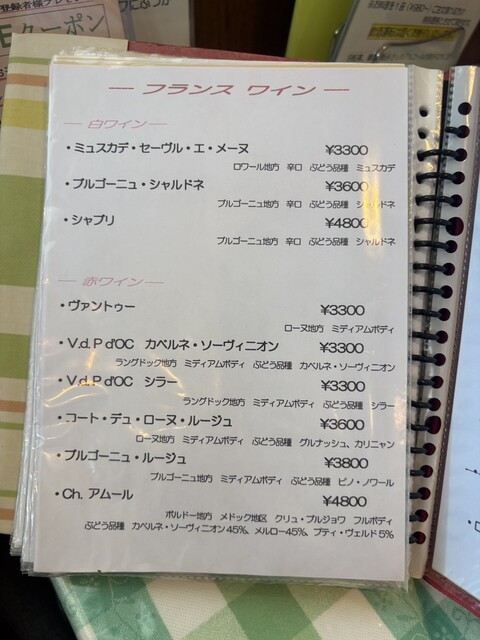 クーポン
― フランス ワイン ―
― 白ワイン ―
・ミュスカデ・セーヴル・エ・メーヌ ¥3300
ロワール地方 辛口 ぶどう品種 ミュスカデ
・ブルゴーニュ・シャルドネ ¥3600
ブルゴーニュ地方 辛口 ぶどう品種 シャルドネ
・シャブリ ¥4800
ブルゴーニュ地方 辛口 ぶどう品種 シャルドネ
― 赤ワイン ―
・ヴァントゥー ¥3300
ローヌ地方 ミディアムボディ
・V.d.P d'OC カベルネ・ソーヴィニオン ¥3300
ラングドック地方 ミディアムボディ ぶどう品種 カベルネ・ソーヴィニオン
・V.d.P d'OC シラー ¥3300
ラングドック地方 ミディアムボディ ぶどう品種 シラー
・コート・デュ・ローヌ・ルージュ ¥3600
ローヌ地方 ミディアムボディ ぶどう品種 グルナッシュ、カリニャン
・ブルゴーニュ・ルージュ ¥3800
ブルゴーニュ地方 ミディアムボディ ぶどう品種 ピノ・ノワール
・Ch. アムール ¥4800
ボルドー地方 メドック地区 クリュ・ブルジョワ フルボディ
ぶどう品種 カベルネ・ソーヴィニオン45%、メルロー45%、プティ・ヴェルド5%